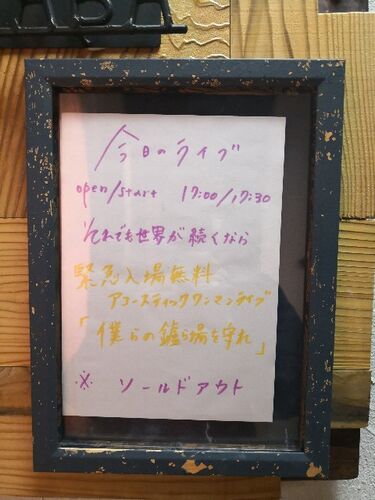 今日のライブ
open/start 17:00/17:30
それでも世界が続くなら
緊急入場無料
アコースティックワンマンライブ
「僕らの鑪ら場を守れ」
※ ソールドアウト